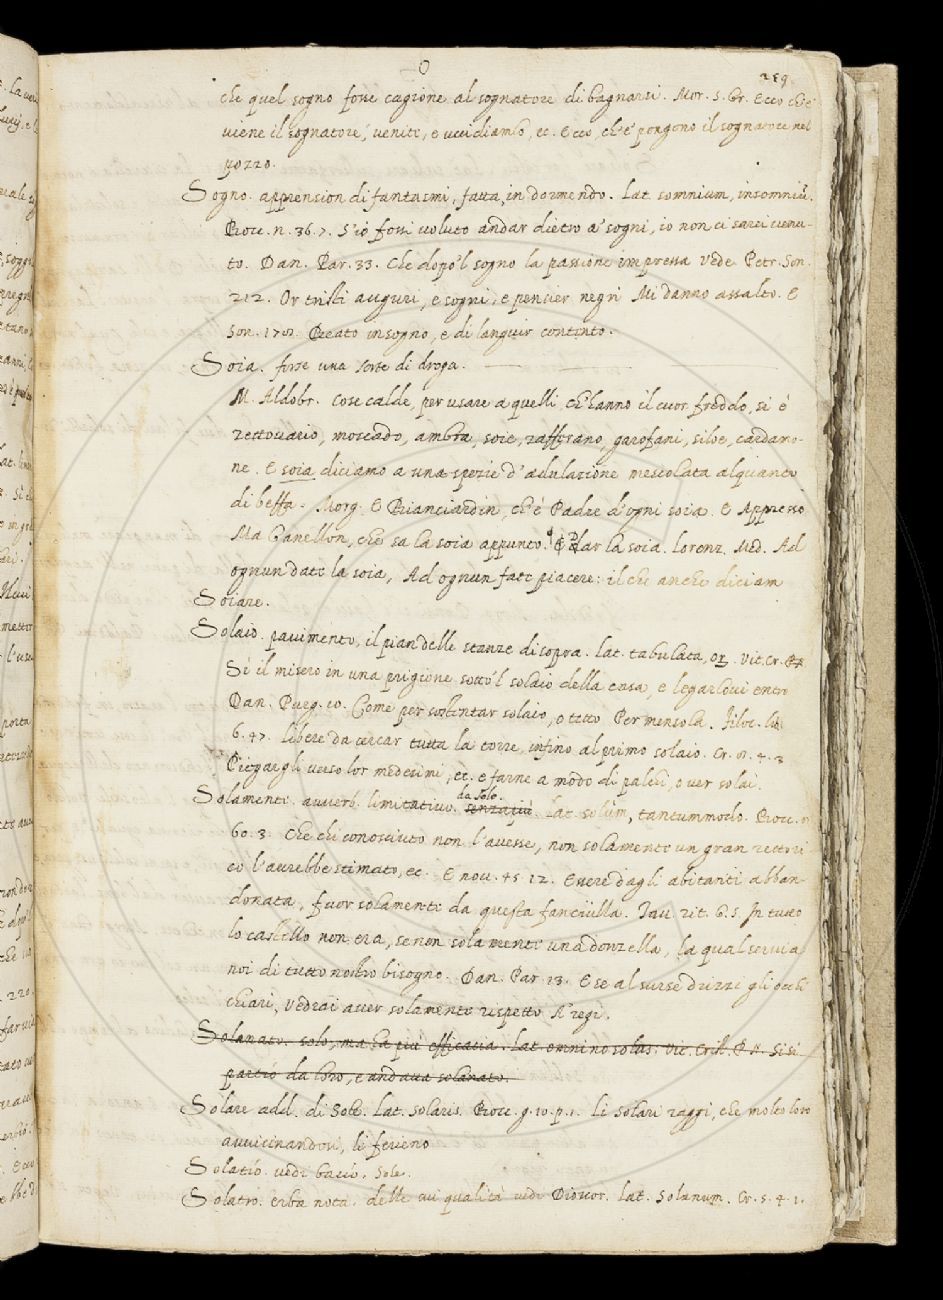 O
259.
che quel sogno fosse cagione al sognatore di bagnarsi. Mor. S. Gr. Ecco ch'e'
viene il sognatore, venite, e uccidiamlo, ec. Ecco, ch'e' pongono il sognatore nel
pozzo.
Sogno. apprension di fantasmi, fatta, in dormendo. Lat. somnium, insomniũ.
Bocc. n. 36. 7. S'io fossi voluto andar dietro a' sogni, io non ci sarei venu-
to. Dan. Par. 33. Che dopo 'l sogno la passione impressa vede Petr. Son.
212. Or tristi auguri, e sogni, e pensier negri Mi danno assalto. E
Son. Beato in sogno, e di languir contento.
Soia. forse una sorte di droga.
M. Aldobr. Cose calde, per usare a quelli, ch'hanno il cuor freddo, si è
rettovario, moscado, ambra, soie, zafferano, garofani, siloe, cardamo-
ne. E soia diciamo a una spezie d'adulazione mescolata alquanto
di beffa. Morg. E Bianciardin, ch'è Padre d'ogni soia. E Appresso
Ma Ganellon, che sa la soia appunto. Dar la soia. Lorenz. Med. Ad
ognun date la soia, Ad ognun fate piacere: il che anche diciam
Soiare.
Solaio. pavimento, il pian delle stanze di sopra. Lat. tabulata, or. Vit. Cr.
Sì il misero in una prigione sotto 'l solaio della casa, e legarlovi entro
Dan. Purg. 10. Come per sostentar solaio, o tetto Per mensola. Filoc. lib.
6. 47. libere da cercar tutta la torre, infino al primo solaio. Cr. 4. 3
Piegargli verso lor medesimi, ec. e farne a modo di palchi, o ver solai.
Solamente. avverb. limitativo. senza più da solo. Lat. solùm, tantummodo. Bocc. n.
60. 3. Che chi conosciuto non l'avesse, non solamente un gran rettori-
co l'avrebbe stimato, ec. E nov. 45. 12. Essere dagli abitanti abban-
donata, fuor solamente da questa fanciulla. Tav. rit. G. S. In tutto
lo castello non era, se non solamente una donzella, la qual servia
noi di tutto nostro bisogno. Dan. Par. 13. E se al surse drizzi gli occhi
chiari, Vedrai aver solamente rispetto A' regi.
Solanato. solo, ma ha più efficacia. Lat. omnino solus. Vit. Crist. Sì si
partiò da loro, e andava solanato.
Solare add. di Sole. Lat. solaris. Bocc. g. 10. p. 1. Li solari raggi, che molto loro
avvicinandosi, li ferieno
Solatio. vedi bacìo. Sole.
Solatro. erba nota. delle cui qualità vedi Dioscor. Lat. Solanum. Cr. 5. 4. 1.